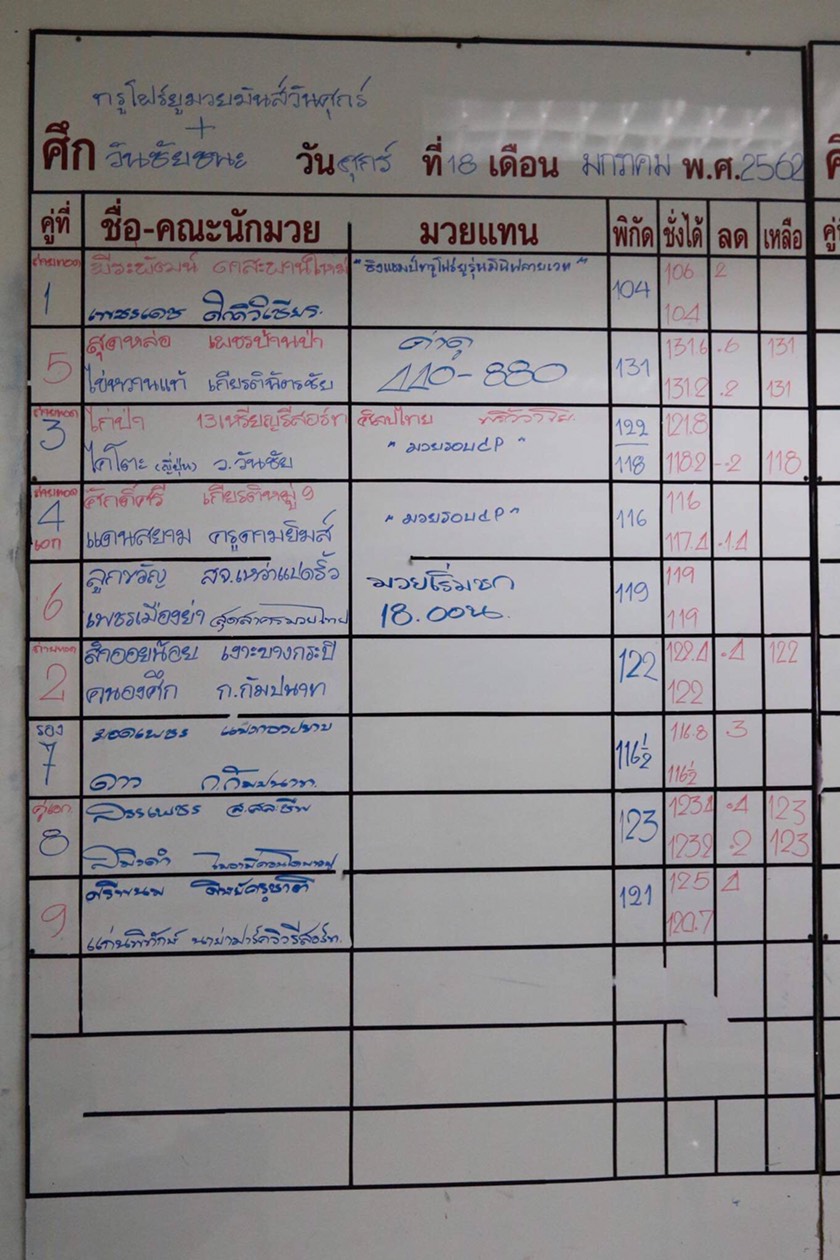 ทรูโฟร์ยูมวยมันส์วันศุกร์
+
ศึก วันชัยชนะ วันศุกร์ ที่ 18 เดือน มกราคม พ.ศ.2562
คู่ที่ ชื่อ-คณะนักมวย มวยแทน พิกัด ชั่งได้ ลด เหลือ
ถ่ายทอด พีระพัฒน์ "ชิงแชมป์ทรูโฟร์ยูรุ่นมินิฟลายเวท" 106 2
1 เพชรเดช 104 104
สุดหล่อ เพชรบ้านป่า ค่าดู 131.6 .6 131
5 ไข่หวานแท้ เกียรติฉัตรชัย 440-880 131 131.2 .2 131
ถ่ายทอด ไก่ป่า 13เหรียญรีสอร์ท ศิลปไทย 122 121.8
3 ไคโตะ (ญี่ปุ่น) ว.วันชัย "มวยรอบ 4P" 118 118.2 -.2 118
ถ่ายทอด ศักดิ์ศรี เกียรติหมู่9 116
4 เอก แดนสยาม ครูดามยิมส์ "มวยรอบ 4P" 116 117.4 -1.4
ลูกขวัญ สจ.เหว่าแปดริ้ว มวยเริ่มชก 119
6 เพชรเมืองย่า สุดสาครมวยไทย 18.00น. 119 119
ถ่ายทอด สำออยน้อย เงาะบางกระปิ 122.4 .4 122
2 คนองศึก ก.กัมปนาท 122 122
รอง ยอดเพชร 116.8 .3
7 ดาว ก.กัมปนาท. 116½ 116½
คู่เอก สรรเพชร 123.4 .4 123
8 123 123.2 .2 123
ศรีพนม 125 4
9 แก่นพิทักษ์ 121 120.7